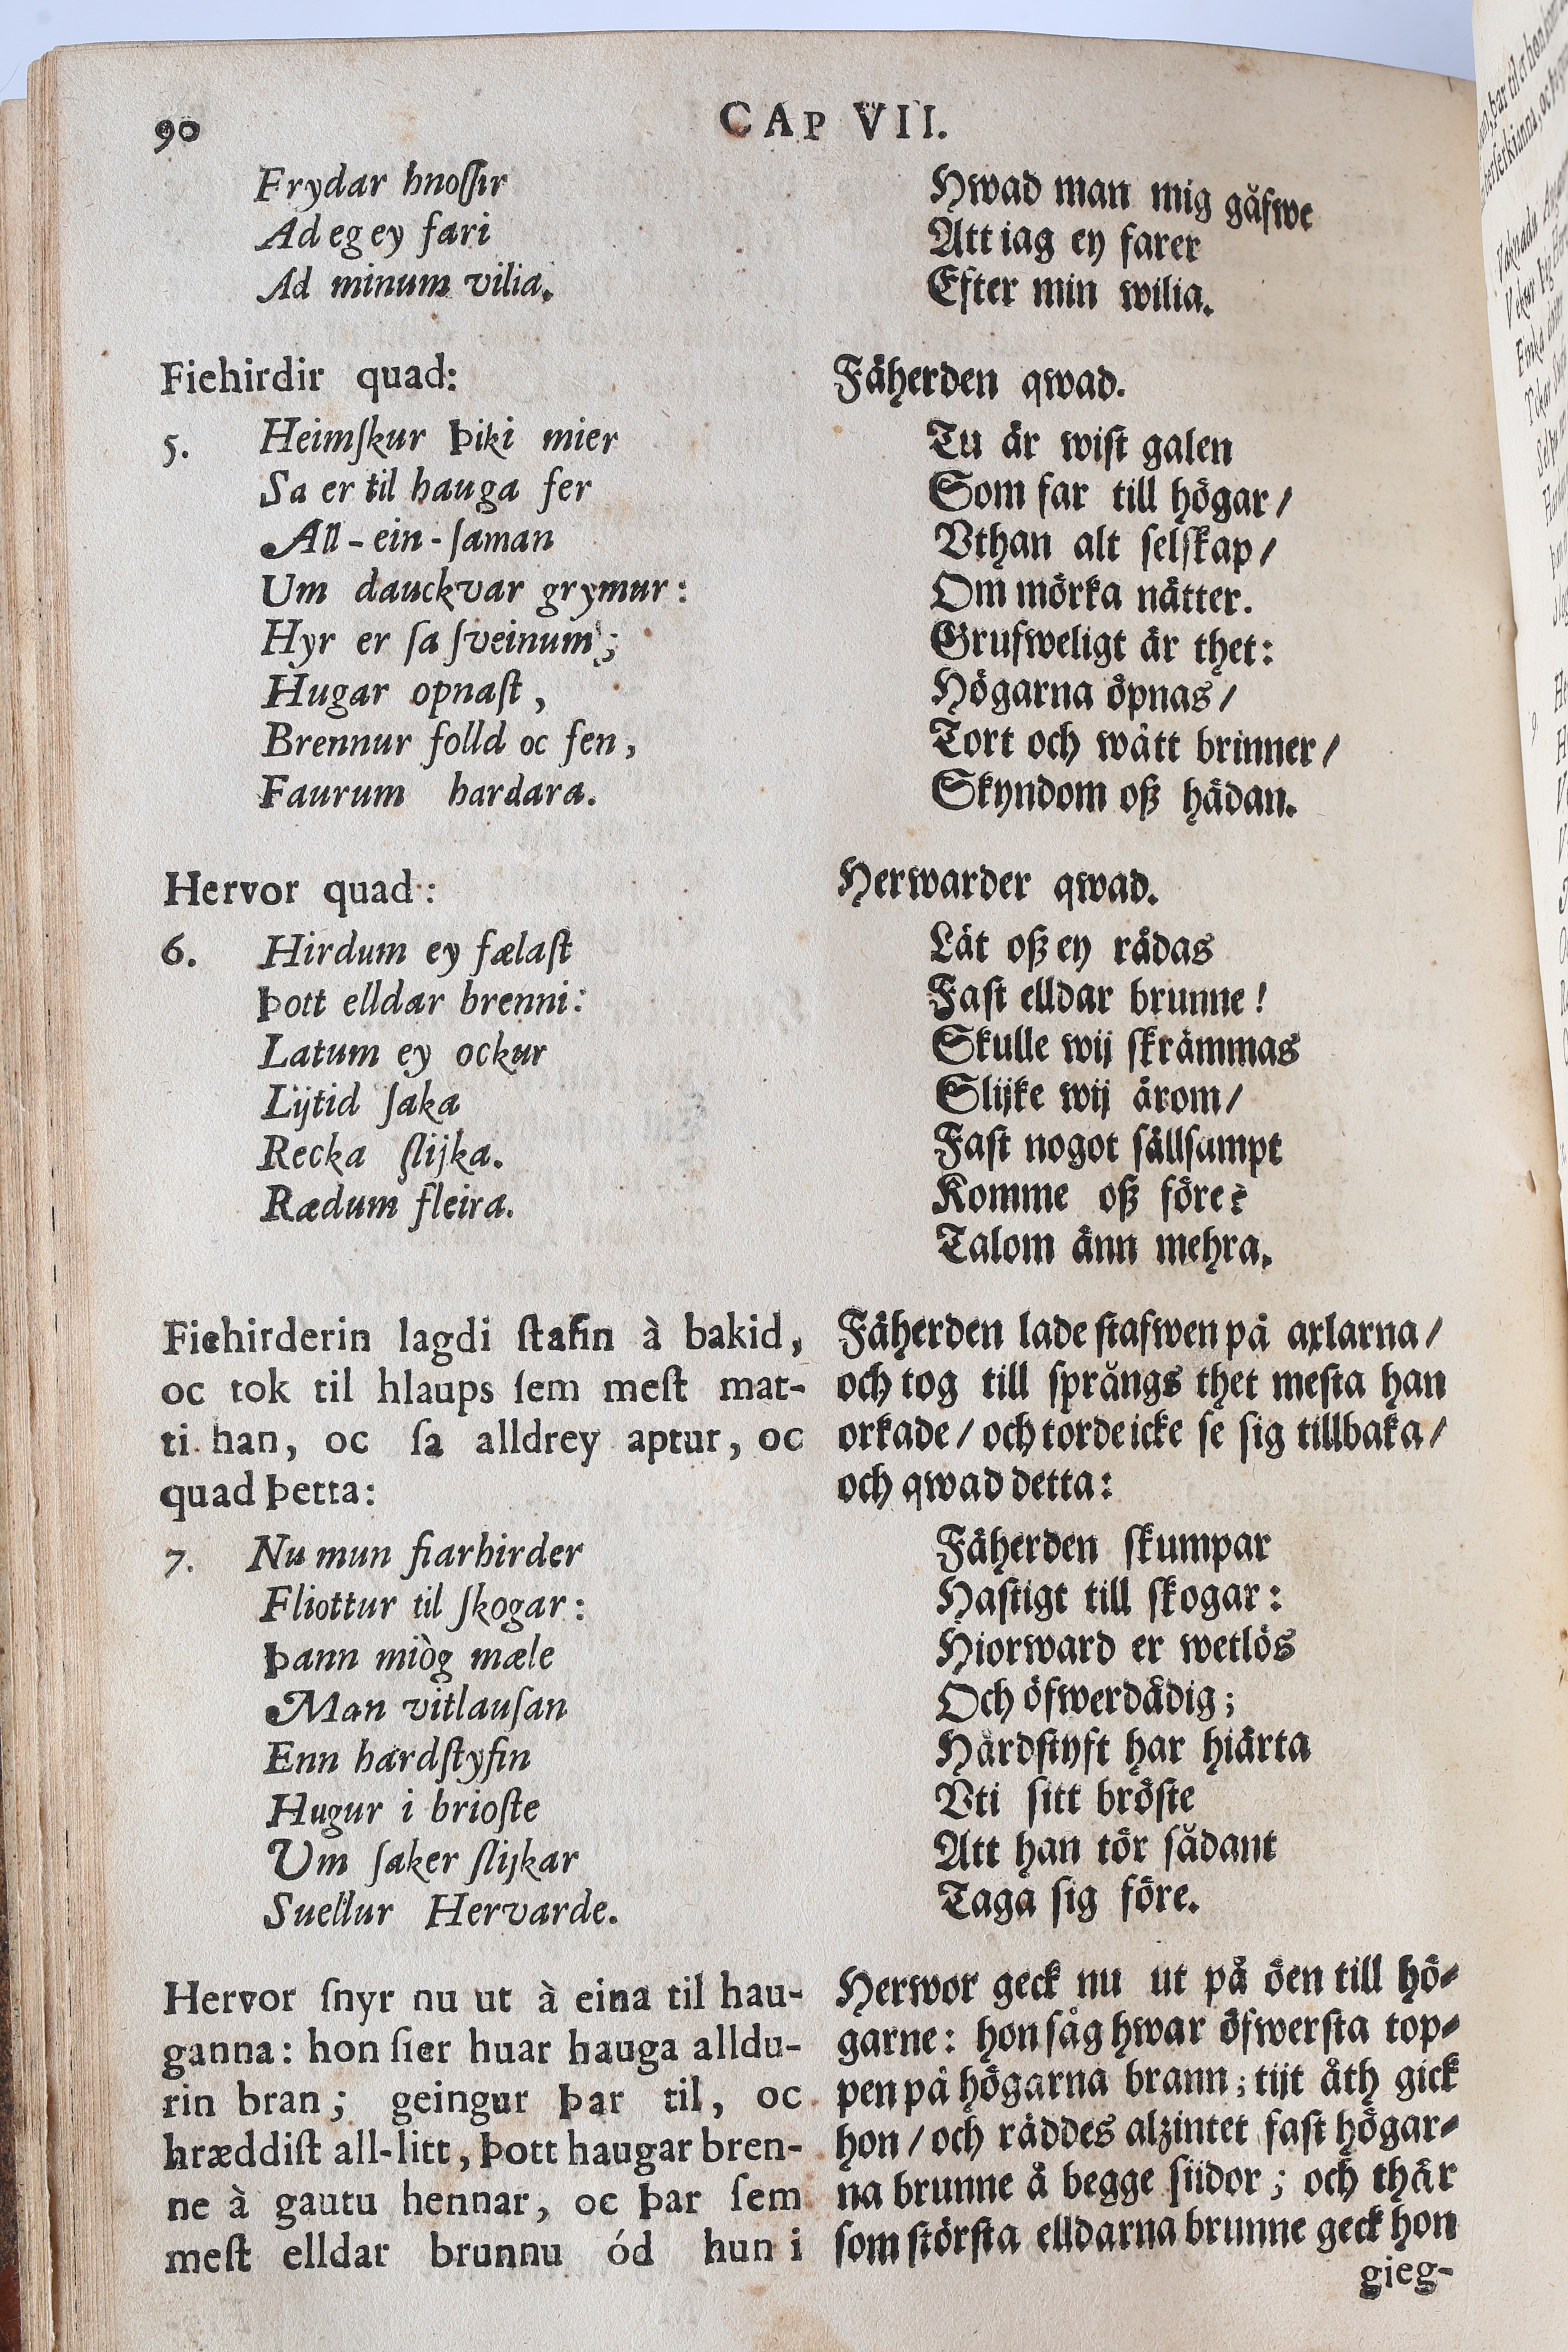 90
CAP VII.
Frydar hnoſſir
Ad eg ey fari
Ad minum vilia.
Fiehirdir quad:
5. Heimſkur þiki mier
Sa er til hauga fer
All-ein-ſaman
Um dauckvar grymur:
Hyr er ſa ſveinum;
Hugar opnaſt,
Brennur folld oc fen,
Faurum hardara.
Hervor quad:
6. Hirdum ey fælaſt
Þott elldar brenni:
Latum ey ockur
Lijtid ſaka
Recka ſlijka.
Rædum fleira.
Fiehirderin lagdi ſtafin à bakid,
oc tok til hlaups ſem meſt mat-
ti han, oc ſa alldrey aptur, oc
quad þetta:
7. Nu mun fiarhirder
Fliottur til ſkogar:
Þann miòg mæle
Man vitlauſan
Enn hardſtyfin
Hugur i brioſte
Um ſaker ſlijkar
Suellur Hervarde.
Hervor ſnyr nu ut à eina til hau-
ganna: hon ſier huar hauga alldu-
rin bran; geingur þar til, oc
hræddiſt all-litt, þott haugar bren-
ne à gautu hennar, oc þar ſem
meſt elldar brunnu ód hun i
Hwad man mig gåfwe
Att iag ey farer
Efter min wilia.
Fäherden qwad.
Tu är wiſt galen
Som far till högar/
Vthan alt ſelſkap/
Om mörka nätter.
Grufweligt är thet:
Högarna öpnas/
Tort och wått brinner/
Skyndom oß hädan.
Herwarder qwad.
Låt oß ey rädas
Faſt elldar brunne!
Skulle wij ſkrämmas
Slijke wij ärom/
Faſt nogot ſällſampt
Komme oß före?
Talom änn mehra.
Fäherden lade ſtafwen på axlarna/
och tog till ſprångs thet meſta han
orkade/ och torde icke ſe ſig tillbaka/
och qwad detta:
Fäherden ſkumpar
Haſtigt till ſkogar:
Hiorward er wetlös
Och öfwerdådig;
Hårdſtyft har hiärta
Vti ſitt bröſte
Att han tör ſådant
Taga ſig före.
Herwor geck nu ut på öen till hö-
garne: hon ſåg hwar öfwerſta top-
pen på högarna brann; tijt åth gick
hon/ och räddes alzintet faſt högar-
na brunne å begge ſiidor; och thär
ſom ſtörſta elldarna brunne geck hon
gieg-